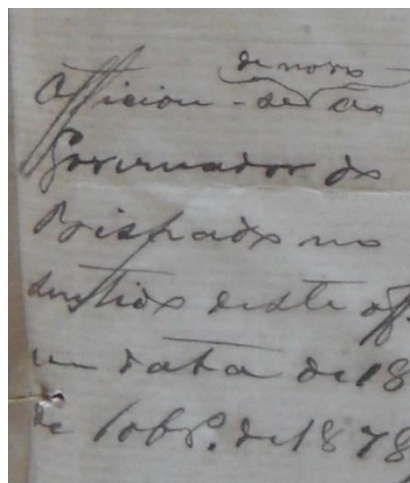 de novo
Officiou-se ao
Governador do
Bispado no
sentido deste off.
em data de 18
de 10bro. de 1878